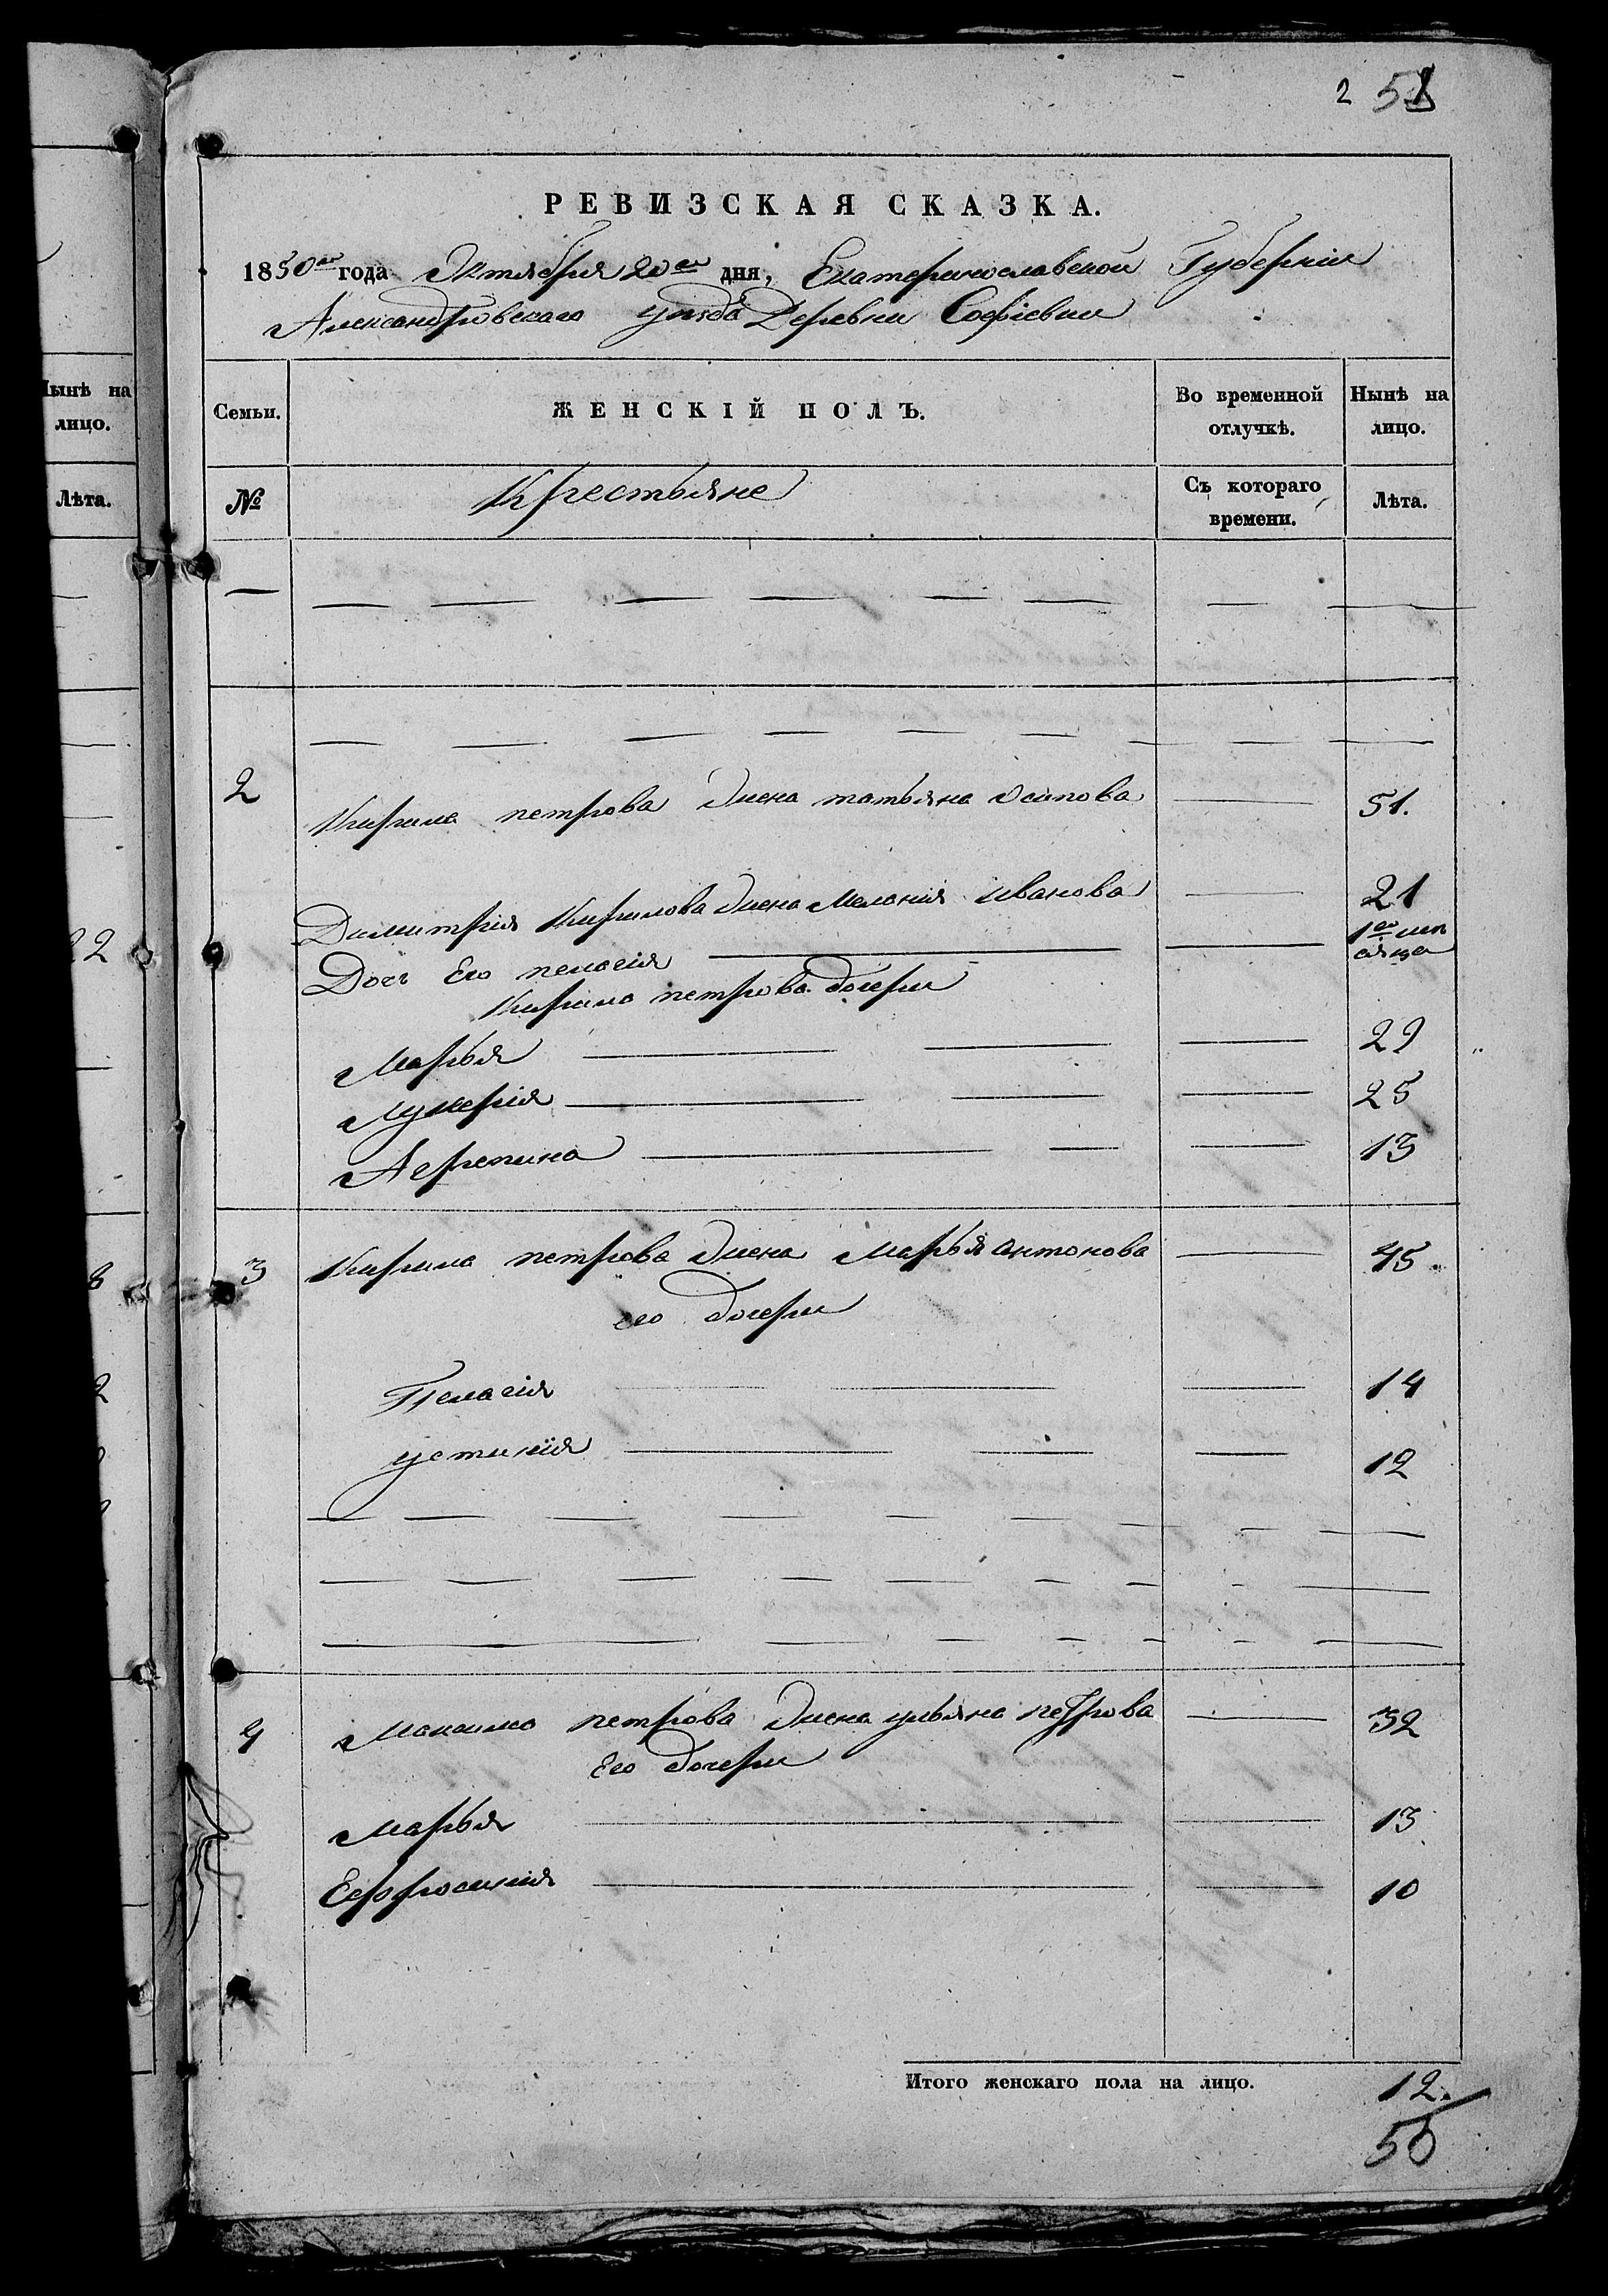 2 51
РЕВИЗСКАЯ СКАЗКА.
1850го года Октября 20го дня, Екатеринославской Губернии
Александровскаго уѣзда Деревни Софіевки
Нынѣ на
лицо.
Лѣта.
Семьи.
ЖЕНСКІЙ ПОЛЪ.
Во временной
отлучкѣ.
Нынѣ на
лицо.
№
Крестьяне
Съ котораго
времени.
Лѣта.
2 Кирила петрова жена татьяна Осипова 51.
Димитрія Кирилова жена Меланія иванова 21
Дочь Его пелагія 1го мѣсяца
Кирила петрова дочери
Марья 29
Лукерія 25
Агрепина 13
3 Кирила петрова жена Марья антонова 45.
его дочери
Пелагія 14
устинія 12
4 Максима петрова жена ульяна петрова 32
Его дочери
Марья 13
Ефросинія 10
Итого женскаго пола на лицо. 12.
50
22
8
2